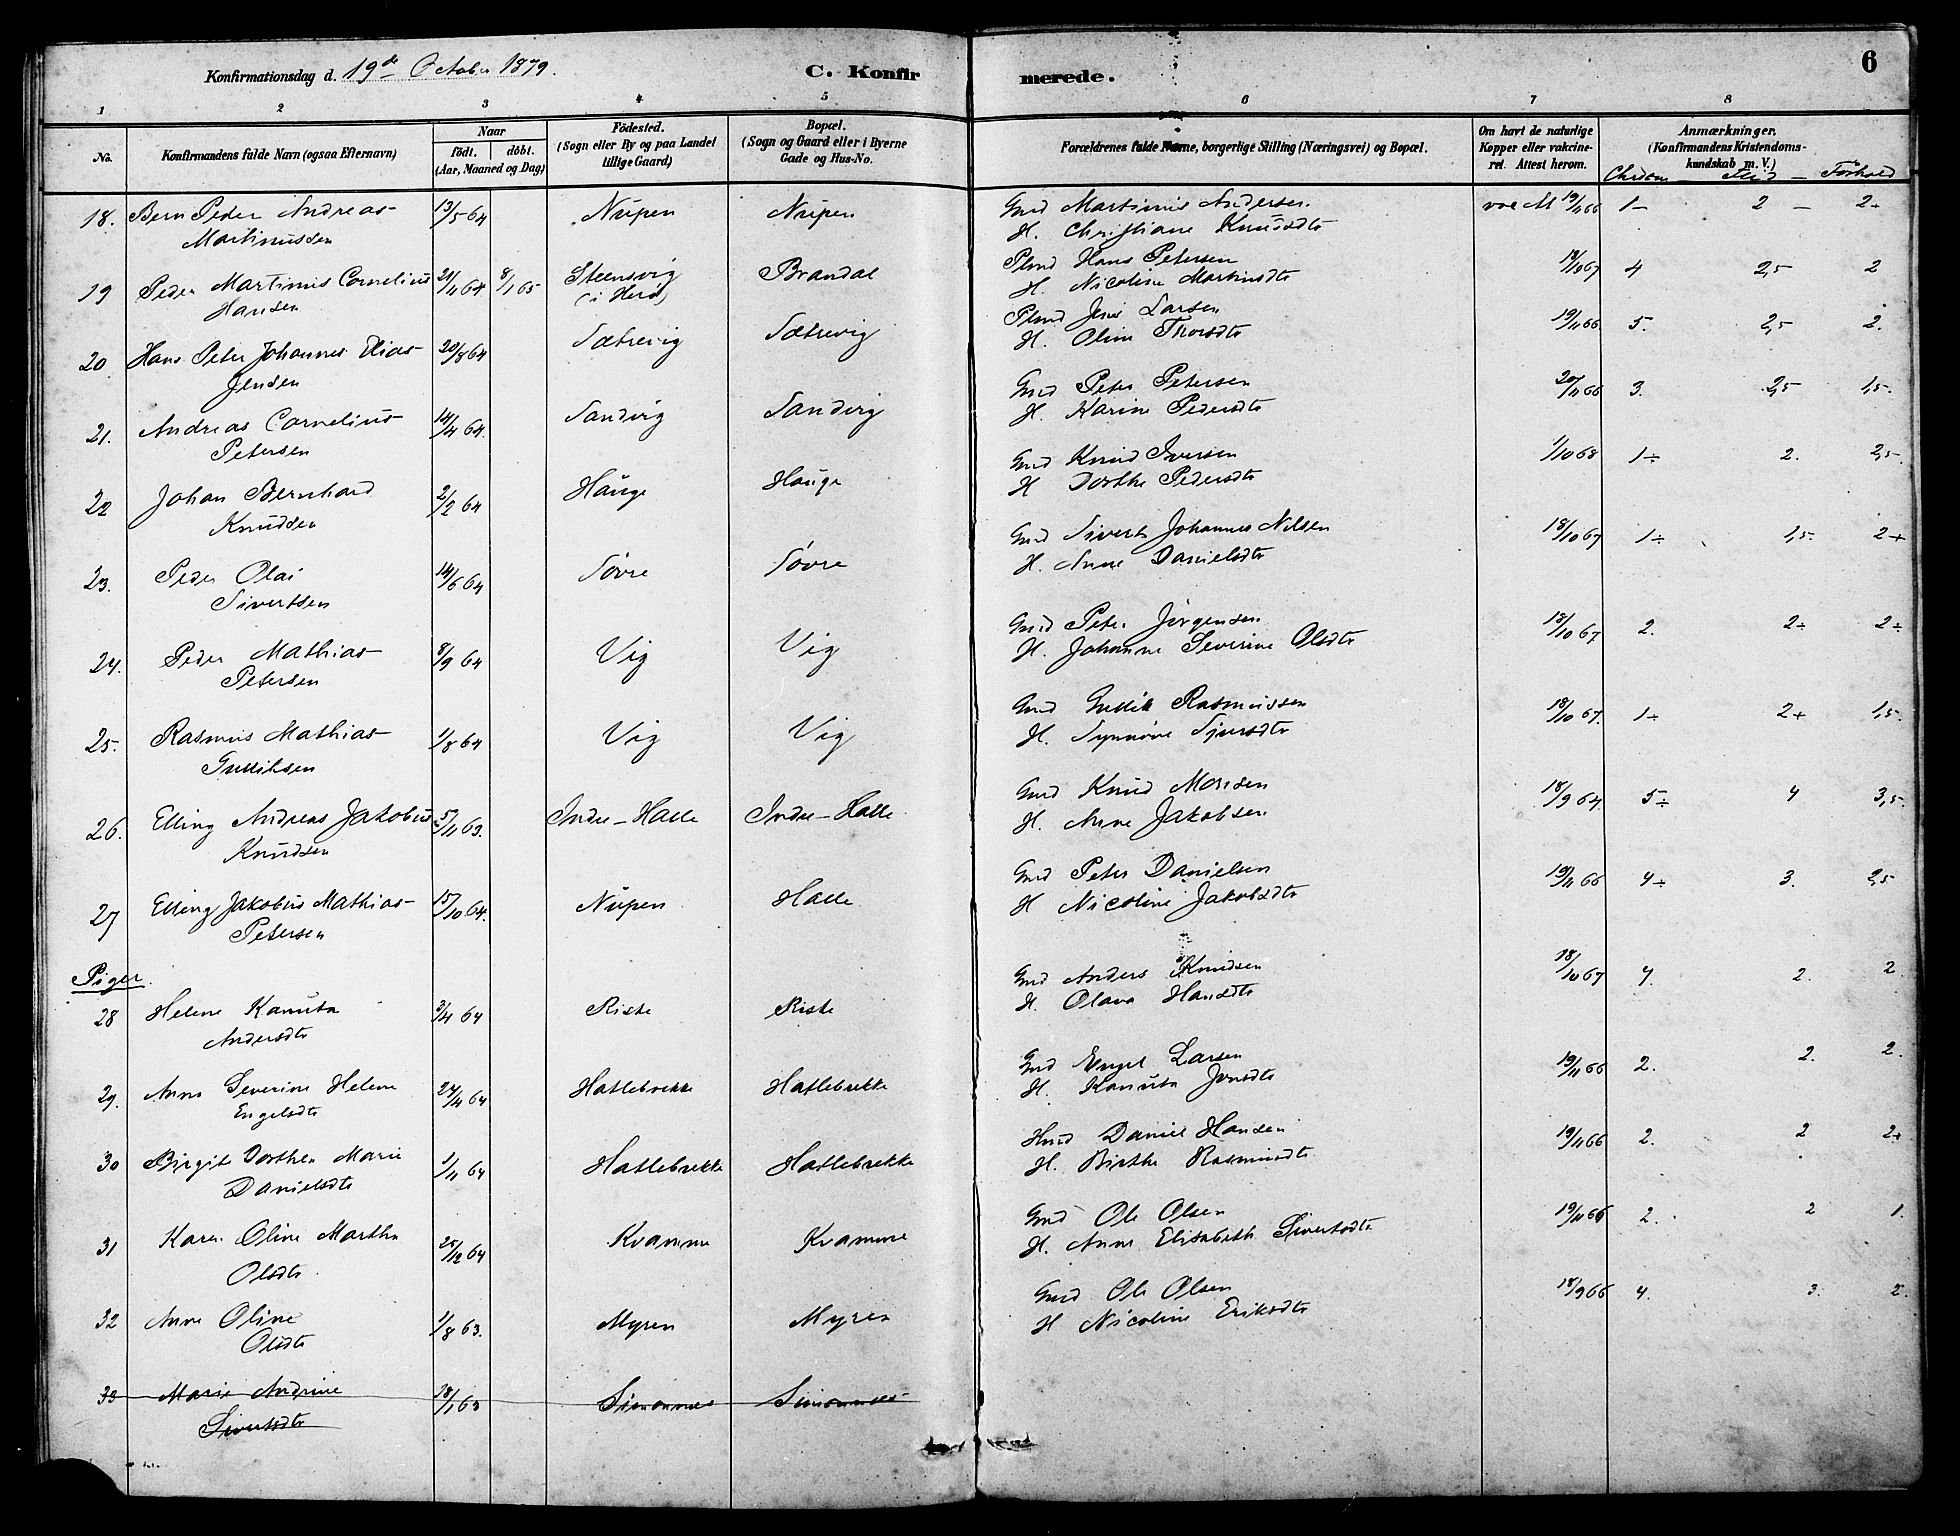 Konfirmationsdag d. 19de October 1879. C. Konfirmerede. 6
1 2 3 4 5 6 7 8
No. Konfirmandens fulde Navn (ogsaa Efternavn) Naar födt. döbt. (Aar, Maaned og Dag) Födested. (Sogn eller By og paa Landet tillige Gaard) Bopæl. (Sogn og Gaard eller i Byerne Gade og Hus-No. Forældrenes fulde Navne, borgerlige Stilling (Næringsvei) og Bopæl. Om havt de naturlige Kopper eller vakcineret. Attest herom. Anmærkninger. (Konfirmandens Kristendomskundskab m. V.)
Chrdom Flid Forhold
18. Bern Peder Andreas 13/5 64 Nupen Nupen Gmd Martinus Andersen vac M 19/11 66 1- 2 - 2+
Martinussen H. Christiane Knudsdtr
19 Peder Martinus Cornelius 21/11 64 8/1 65 Steensvig Brandal Plmd Hans Petersen 18/10 67 4 2,5 2
Hansen (i Herø) H. Nicoline Martinsdtr
20 Hans Peter Johannes Elias 20/8 64 Sætrevig Sætrevig Plmd Jens Larsen 19/11 66 5. 2,5 2.
Jensen H. Oline Thorsdtr
21. Andreas Cornelius 14/4 64. Sandvig Sandvig Gmd Peter Petersen 20/11 66 3. 2,5 1,5.
Petersen H. Karine Pedersdtr
22 Johan Bernhard 2/2 64 Hauge Hauge Gmd Knud Iversen 1/10 68 1÷ 2. 2,5.
Knudsen H Dorthe Pedersdtr
23. Peder Olai 14/6 64 Søvre Søvre Gmd Sivert Johannes Nilsen 18/10 67 1÷ 1,5. 2+
Sivertsen H. Anne Danielsdtr
24. Peder Mathias 8/9 64 Vig Vig Gmd Peter Jörgensen 18/10 67 2. 2÷ 2÷
Petersen H. Johanne Severine Olsdtr
25. Rasmus Mathias 1/8 64 Vig Vig Gmd Gullik Rasmussen 18/10 67. 1÷ 2+ 1,5.
Gulliksen H. Synnøve Sjursdtr
26. Elling Andreas Jakobus 5/11 63. Indre-Halle Indre-Halle Gmd Knud Monsen 18/9 64. 5÷ 4 3,5.
Knudsen H. Anne Jakobsen
27 Elling Jakobus Mathias 15/10 64. Nupen Halle Gmd Peter Danielsen 19/11 66 4÷ 3. 2,5
Petersen H Nicoline Jakobsdtr
Piger.
28 Helene Kanuta 3/4 64 Riste Riste Gmd Anders Knudsen 18/10 67 4. 2. 2.
Andersdtr H. Olava Hansdtr
29. Anne Severine Helene 24/4 64 Hatlebrekke Hatlebrekke Gmd Engel Larsen 19/11 66 2. 2. 2.
Engelsdtr H. Kanuta Jonsdtr
30 Birgit Dorthea Marie 1/11 64 Hatlebrekke Hatlebrekke Hmd Daniel Hansen 19/11 66 2. 2 2+
Danielsdtr H. Birthe Rasmusdtr
31 Karen Oline Martha 25/12 64 Kvamme Kvamme Gmd Ole Olsen 19/11 66 2. 2 1.
Olsdtr. H. Anne Elisabeth Sivertsdtr
32 Anne Oline 1/8 63. Myren Myren Gmd Ole Olsen 18/9 66 4. 3. 2.
Olsdtr H Nicoline Eriksdtr
33 Marie Andrine 28/1 63 Simonnes Simonnes
Sivertsdtr